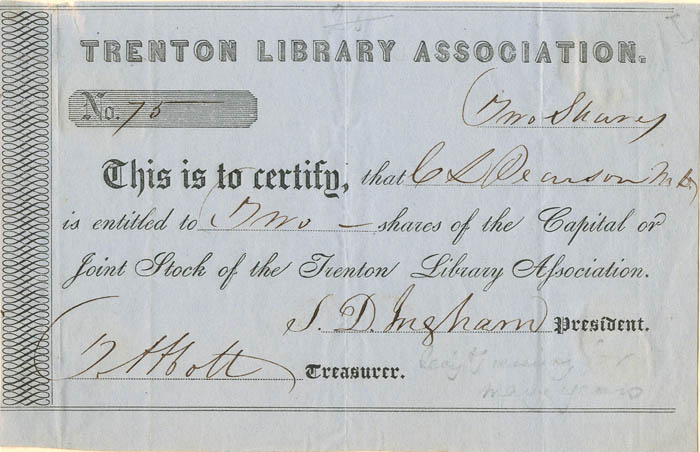 TRENTON LIBRARY ASSOCIATION.
No. 75
Two Shares
This is to certify, that C L Pearson M D
is entitled to Two — shares of the Capital or
Joint Stock of the Trenton Library Association.
S. D. Ingham President.
T. Abbott Treasurer.
many years